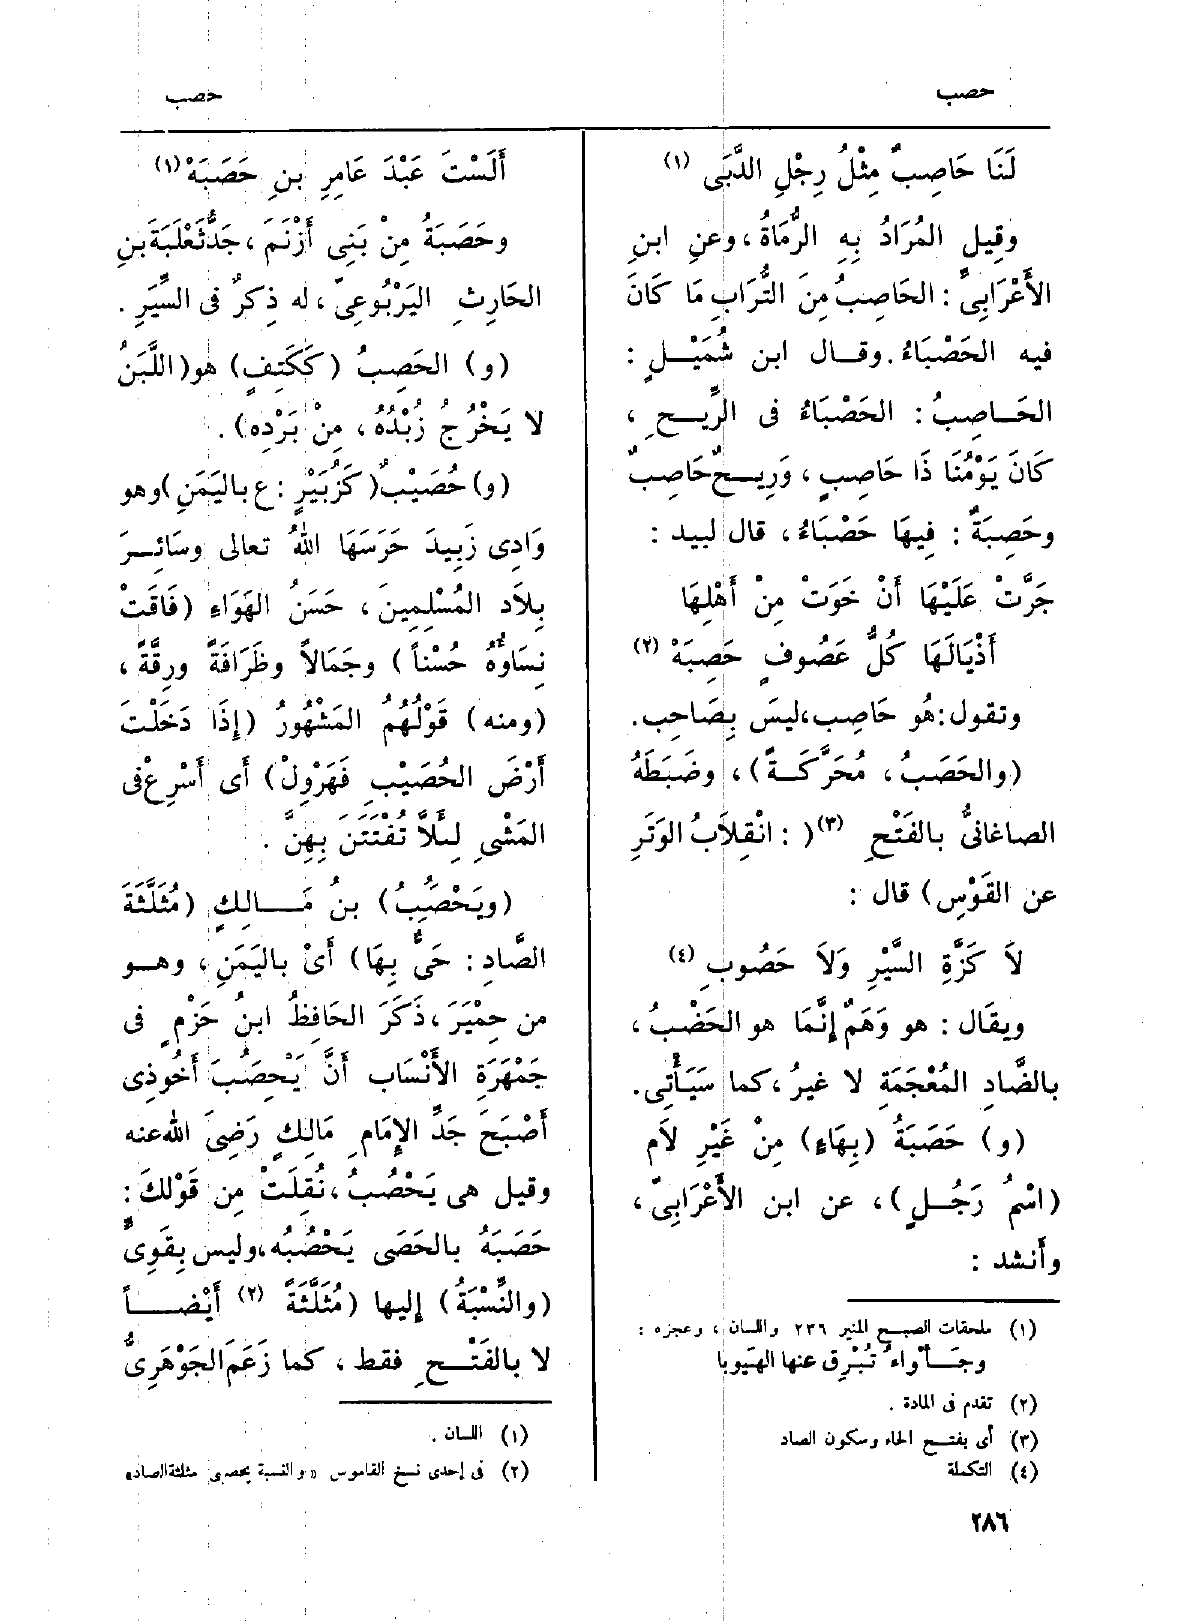 حصب
حصب
لَنَا حَاصِبٌ مِثْلُ رِجْلِ الدَّبَى (١)
وقِيل المُرَادُ بِهِ الرُّمَاةُ، وعنِ ابنِ
الأَعْرَابِىِّ : الحَاصِبُ مِنَ التُّرَابِ مَا كَانَ
فيه الحَصْبَاءُ. وقـال ابن شُمَيْـلٍ :
الحَـاصِبُ : الحَصْبَاءُ فى الرِّيـحِ ،
كَانَ يَوْمُنَا ذَا حَاصِبٍ ، وَرِيـحٌ حَاصِبٌ
وحَصِبَةٌ : فِيهَا حَصْبَاءُ ، قال لبيد :
جَرَّتْ عَلَيْهَا أَنْ خَوَتْ مِنْ أَهْلِهَا
أَذْيَالَهَا كُلُّ عَصُوفٍ حَصِبَهْ (٢)
وتقول : هُو حَاصِب، ليسَ بِصَاحِب.
(والحَصَبُ ، مُحَرَّكَـةً) ، وضَبَطَهُ
الصاغانىُّ بالفَتْحِ (٣) ( : انْقِلاَبُ الوَتَرِ
عن القَوْسِ) قال :
لاَ كَزَّةِ السَّيْرِ وَلاَ حَصُوبِ (٤)
ويقال : هو وَهَمٌ إِنَّمَا هو الحَضْبُ ،
بالضَّادِ المُعْجَمَةِ لا غيرُ ، كما سَيَأْتِى.
(و) حَصَبَةُ (بِهَاءٍ) مِنْ غَيْرِ لاَم
(اسْمُ رَجُـلٍ) ، عن ابن الأَعْرَابِىِّ ،
وأنشد :
(١) ملحقات الصبح المنير ٢٣٦ واللسان ، وعجزه :
وجَـأْواءُ تُبْرِق عنها الهَيوبا
(٢) تقدم فى المادة .
(٣) أى بفتح الحاء وسكون الصاد
(٤) التكملة
أَلَسْتَ عَبْدَ عَامِرِ بنِ حَصَبَهْ (١)
وحَصَبَةُ مِنْ بَنِى أَزْنَمَ ، جَدُّ ثَعْلَبَةَ بنِ
الحَارِثِ اليَرْبُوعِىِّ ، له ذِكرٌ فى السِّيَرِ .
(و) الحَصِبُ (كَكَتِفٍ) هو (اللَّبَنُ
لا يَخْرُجُ زُبْدُهُ ، مِنْ بَرْدِه) .
(و) حُصَيْبٌ (كَزُبَيْرٍ : ع باليَمَنِ) وهو
وَادِى زَبِيدَ حَرَسَهَا اللهُ تعالى وسَائِـرَ
بِلاَد المُسْلِمِينَ ، حَسَنُ الهَوَاءِ (فَاقَتْ
نِسَاؤُهُ حُسْناً) وجَمَالاً وظَرَافَةً ورِقَّةً ،
(ومنه) قَوْلُهُمُ المَشْهُورُ (إِذَا دَخَلْتَ
أَرْضَ الحُصَيْبِ فَهَرْوِلْ) أَى أَسْرِعْ فى
المَشْىِ لِئَلاَّ تُفْتَتَنَ بِهِنَّ .
(ويَحْصَبُ) بنُ مَـالِكٍ (مُثَلَّثَةَ
الصَّادِ : حَىٌّ بِهَا) أَىْ باليَمَنِ ، وهـو
من حِمْيَرَ ، ذَكَرَ الحَافِظُ ابنُ حَزْمٍ فى
جَمْهَرَةِ الأَنْسَاب أَنَّ يَحْصُبَ أَخُوذِى
أَصْبَحَ جَدِّ الإِمَامِ مَالِكٍ رَضِىَ اللهُ عنه
وقيل هى يَحْصُبُ ، نُقِلَتْ مِن قَوْلكَ :
حَصَبَهُ بالحَصَى يَحْصُبُه، وليس بِقَوِىٍّ
(والنِّسْبَةُ) إليها (مُثَلَّثَةً (٢) أَيْضـاً
لا بالفَتْـحِ فقط ، كما زَعَمَ الجَوْهَرِىُّ
(١) اللسان .
(٢) فى إحدى نسخ القاموس «والنسبة يحصبى مثلثة الصاد»
٢٨٦